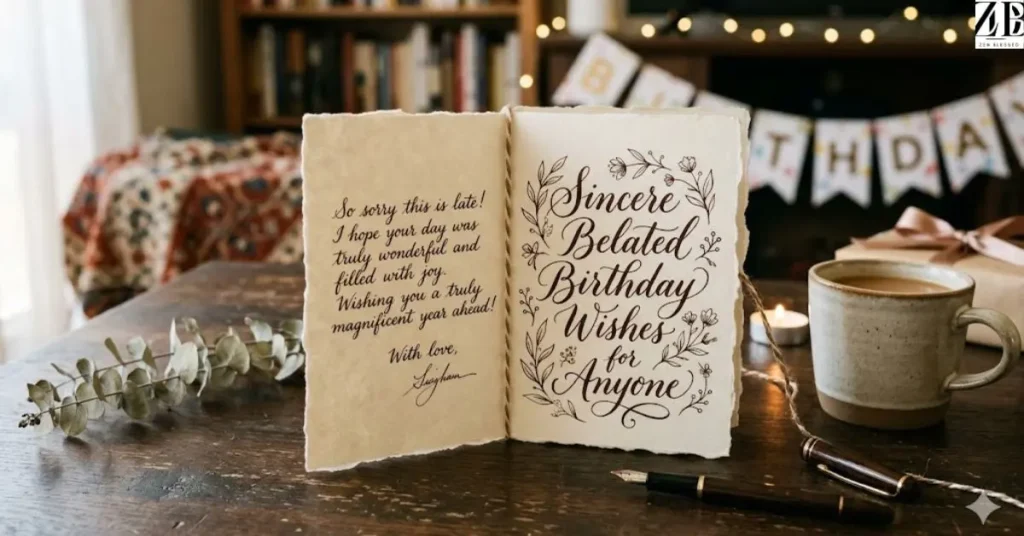 So sorry this is late!
I hope your day was
truly wonderful and
filled with joy.
Wishing you a truly
magnificent year ahead!
With love,
Sincere
Belated
Birthday
Wishes
for
Anyone
B
THDA
ZB
ZEN BLESSED